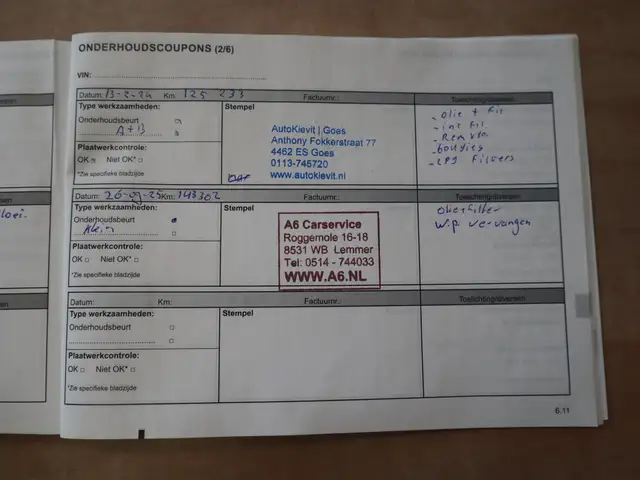 ONDERHOUDSCOUPONS (2/6)
VIN:
Datum: 13-2-24 Km: 125 233 Factuurnr.: Toelichting/diversen:
Type werkzaamheden:
Onderhoudsbeurt
A+B
Plaatwerkcontrole:
OK Niet OK*
*Zie specifieke bladzijde
Stempel
AutoKievit | Goes
Anthony Fokkerstraat 77
4462 ES Goes
0113-745720
www.autokievit.nl
- olie + fil
- int fil
- Remvlo.
- bougies
- LPG Filters
Datum: 26-09-25 Km: 143302 Factuurnr.: Toelichting/diversen:
Type werkzaamheden:
Onderhoudsbeurt
Klein
Plaatwerkcontrole:
OK Niet OK*
*Zie specifieke bladzijde
Stempel
A6 Carservice
Roggemole 16-18
8531 WB Lemmer
Tel: 0514 - 744033
WWW.A6.NL
Olie+filter
W.P vervangen
Datum: Km: Factuurnr.: Toelichting/diversen:
Type werkzaamheden:
Onderhoudsbeurt
Plaatwerkcontrole:
OK Niet OK*
*Zie specifieke bladzijde
Stempel
6.11